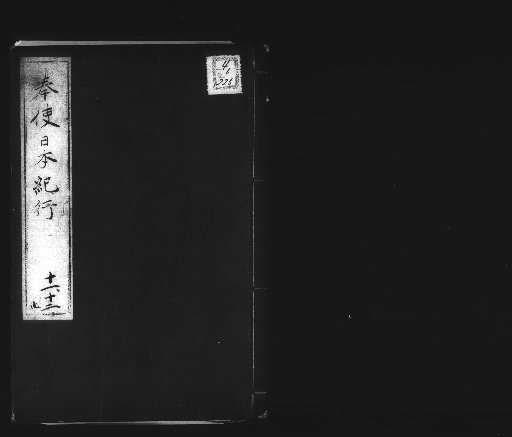 奉使日本紀行
十一、十二
止